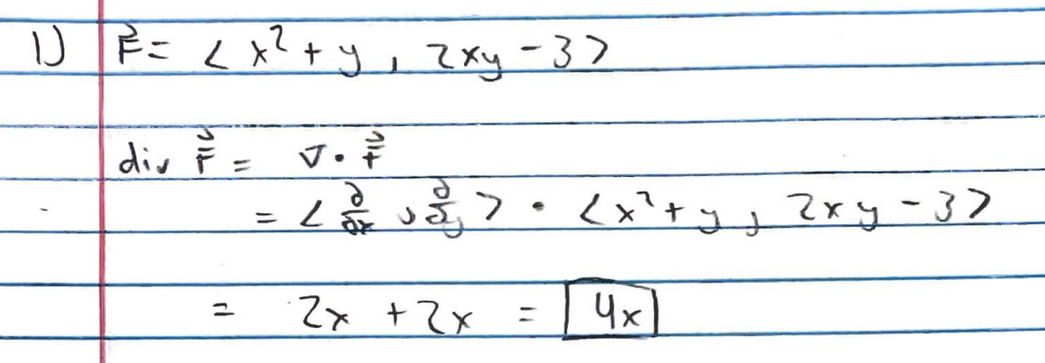 1) F⃗ = < x² + y , 2xy - 3 >
div F⃗ = ∇ · F⃗
= < ∂/∂x , ∂/∂y > · < x² + y , 2xy - 3 >
= 2x + 2x = 4x